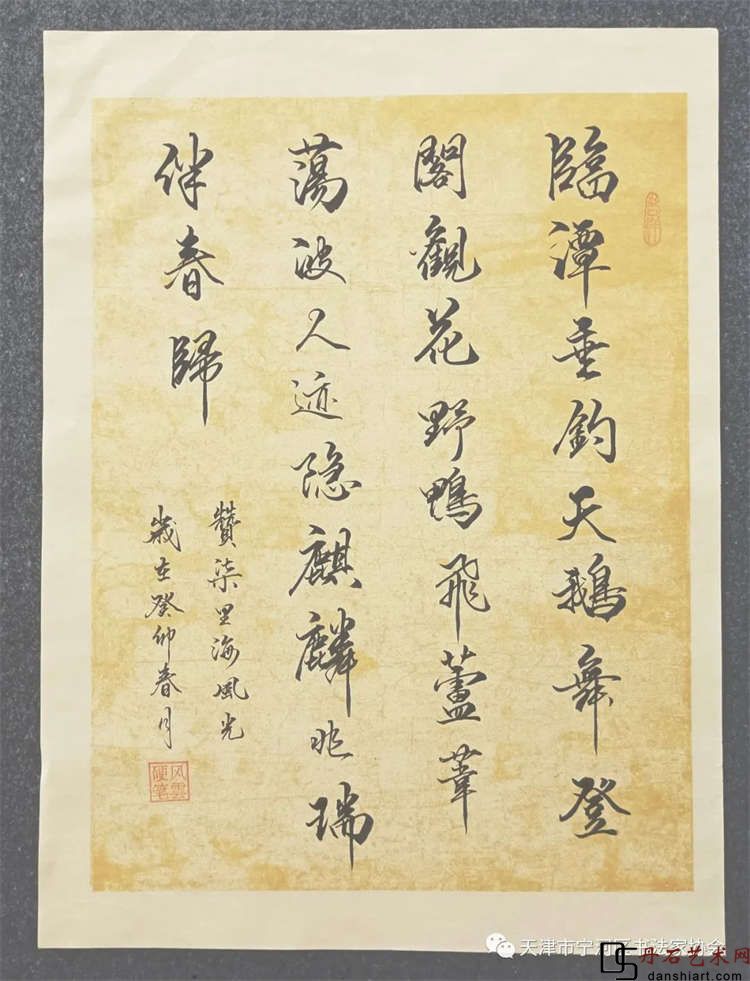 臨潭垂釣天鵝舞登
閣觀花野鴨飛蘆葦
蕩波人迹隐麒麟兆瑞
伴春歸
贊柒里海風光
歲在癸卯春月
风雲硬笔
天津市宁河区书法家协会
丹石艺术网
danshiart.com